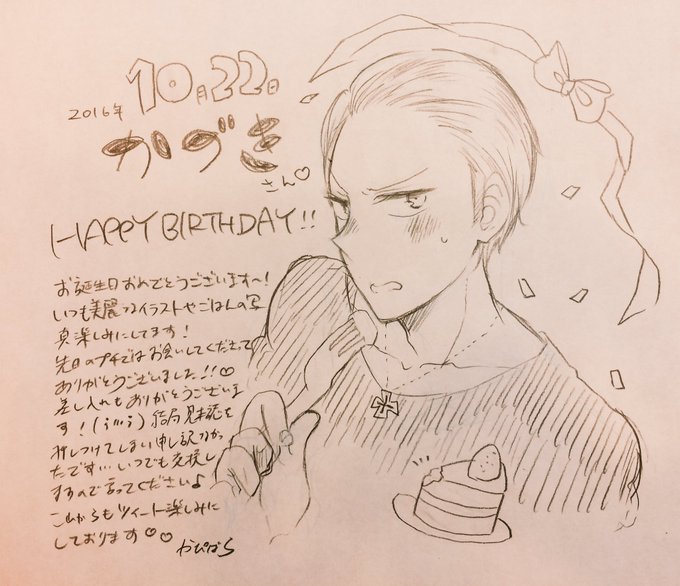 2016年
10月22日
かづきさん♡
HAPPY BIRTHDAY!!
お誕生日おめでとうございます〜!
いつも美麗なイラストやごはんの写
真楽しみにしてます!
先日のプチではお会いしてくださって
ありがとうございました!!♡
差し入れもありがとうございま
す! 結局 を
押しつけてしまい申し訳なかっ
たです… いつでも交換し
ますので言ってください♪
これからもツイート楽しみに
しております♡♡
かぴばら